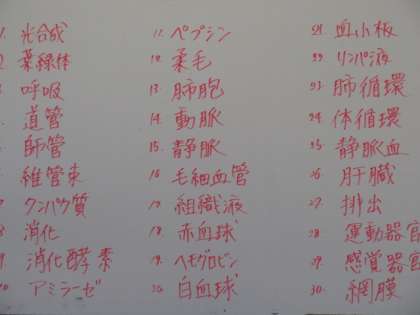 1. 光合成
2 葉緑体
3 呼吸
道管
師管
維管束
タンパク質
8 消化
9 消化酵素
10 アミラーゼ
11. ペプシン
12. 柔毛
13. 肺胞
14. 動脈
15. 静脈
16 毛細血管
17. 組織液
18. 赤血球
19. ヘモグロビン
20 白血球
21. 血小板
22. リンパ液
23. 肺循環
24. 体循環
25. 静脈血
26. 肝臓
27. 排出
28. 運動器官
29. 感覚器官
30. 網膜